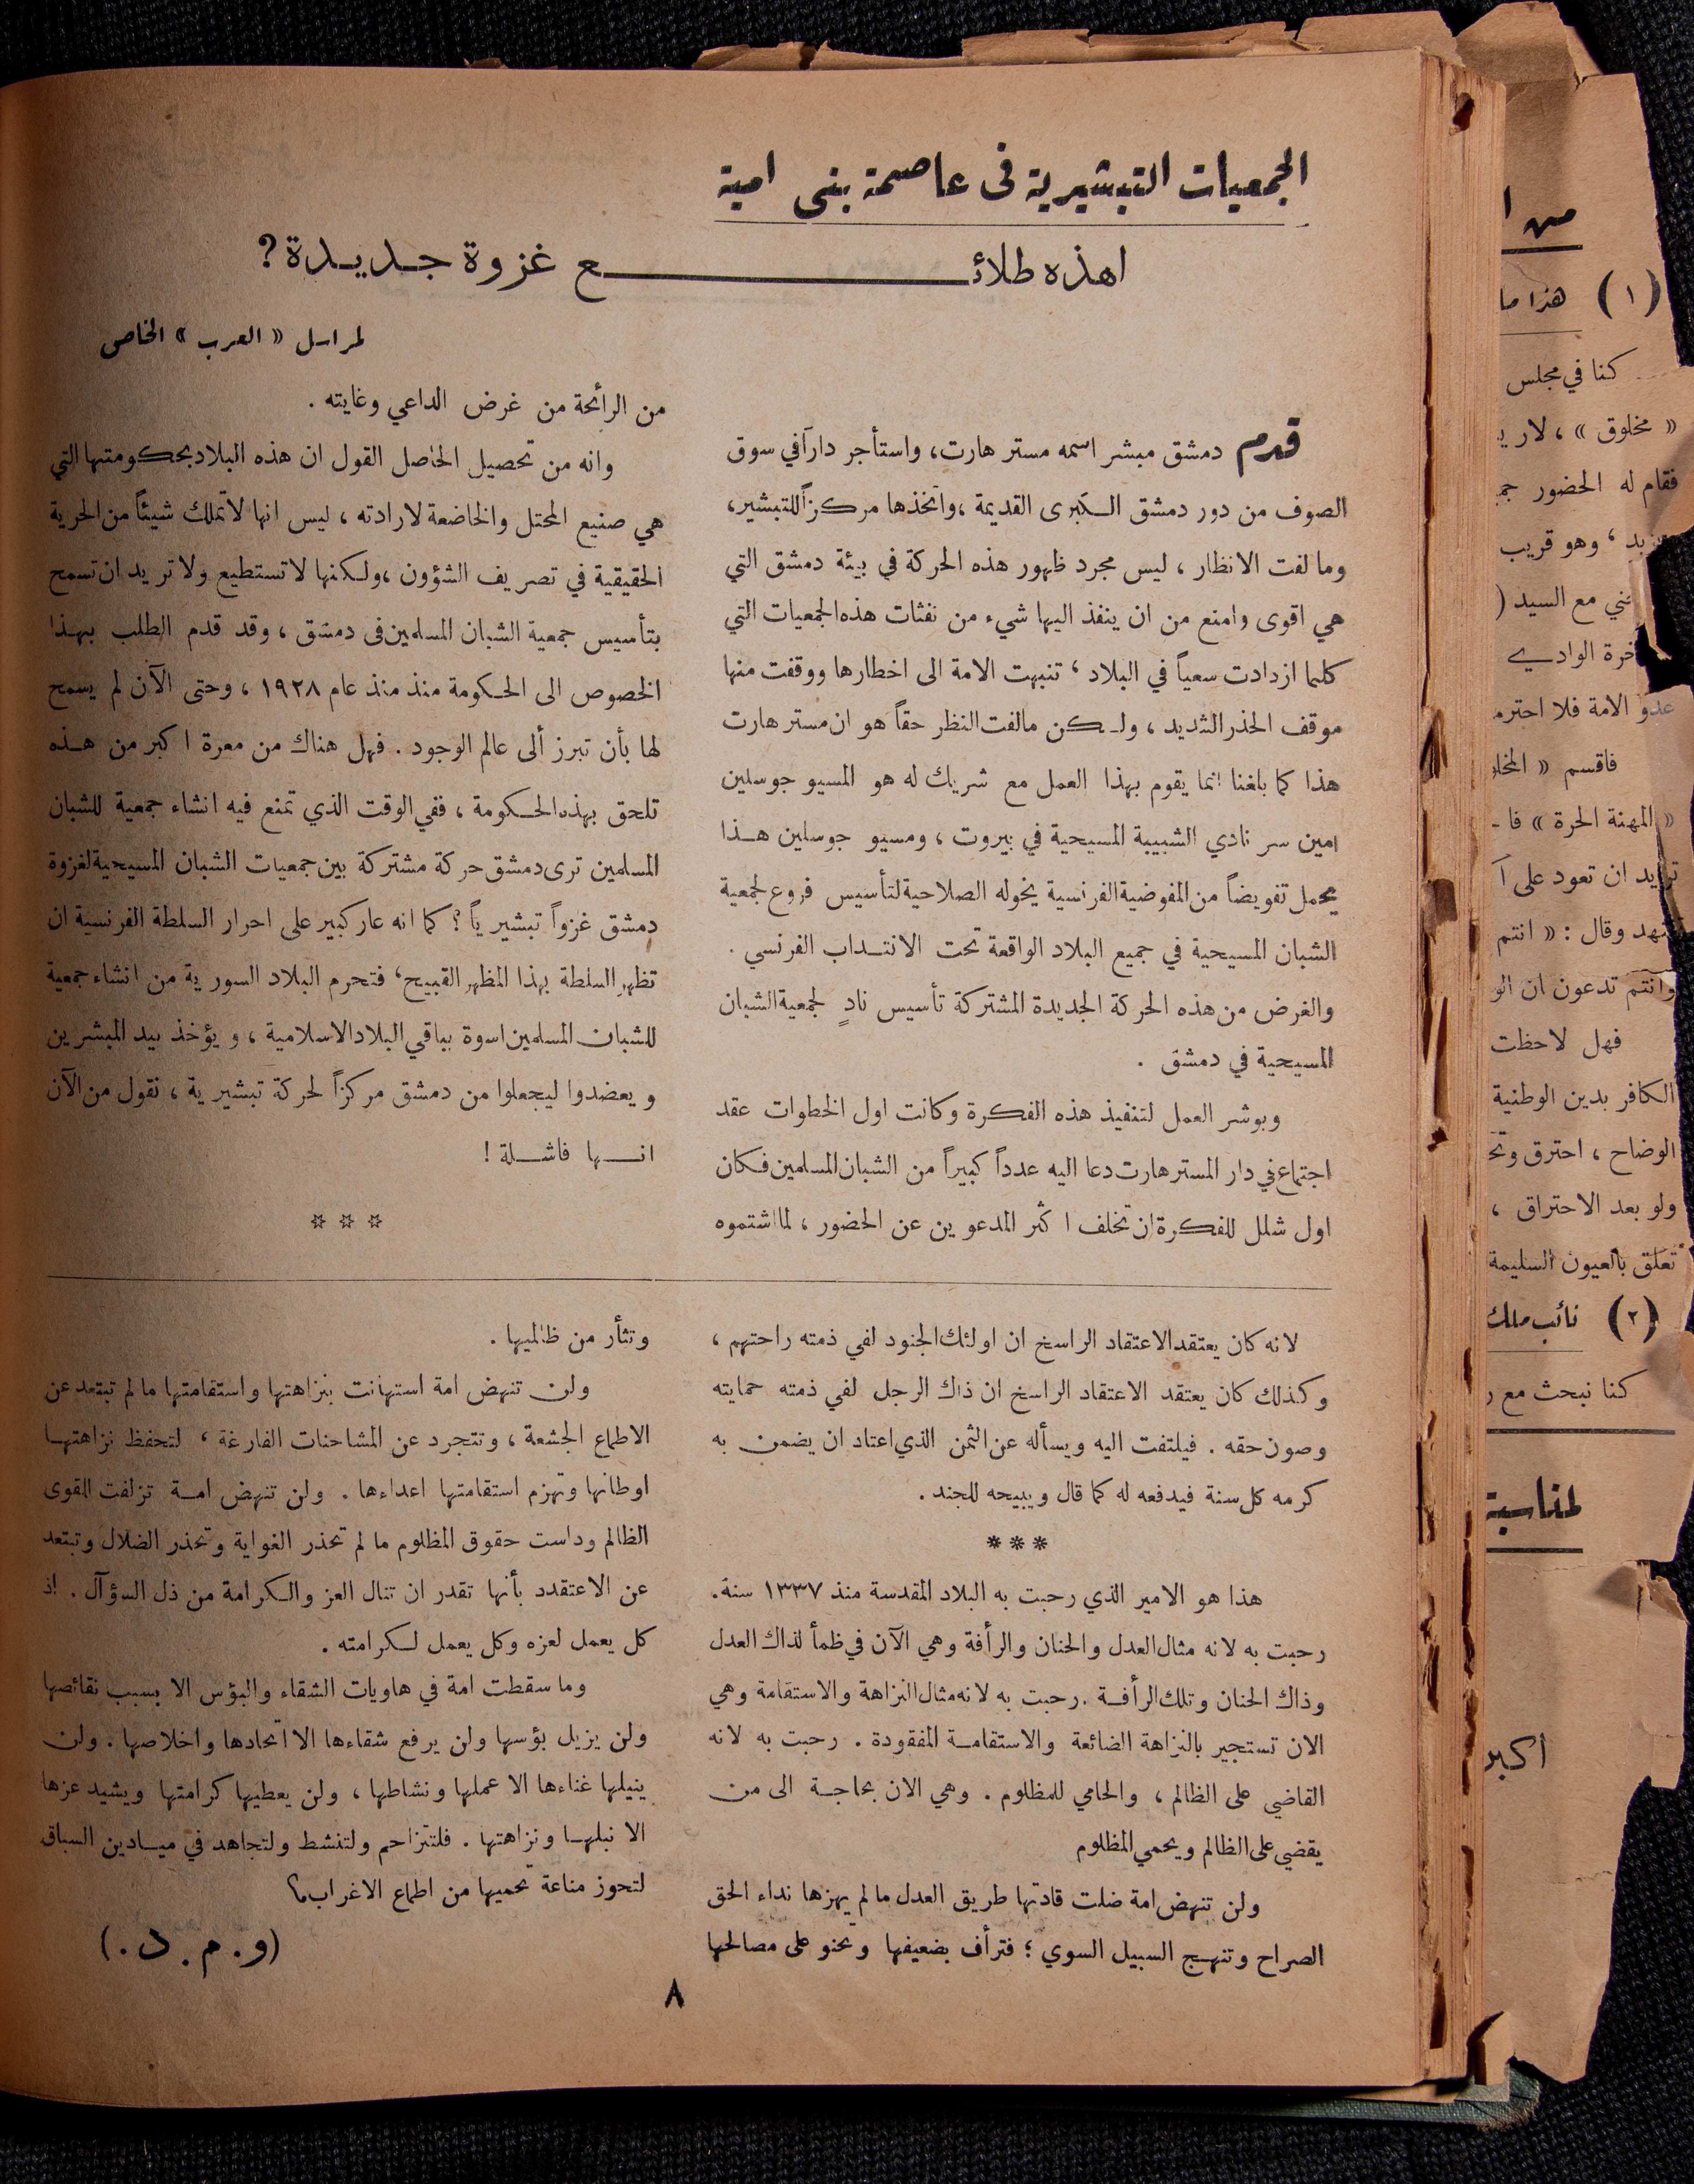 الجمعيات التبشيرية في عاصمة بني امية
اهذه طلائـــــــع غزوة جـديـدة ?
لمراسل « العرب » الخاص
قدم دمشق مبشر اسمه مستر هارت، واستأجر داراً في سوق
الصوف من دور دمشق الكبرى القديمة ، واتخذها مركزاً للتبشير،
وما لفت الانظار ، ليس مجرد ظهور هذه الحركة في بيئة دمشق التي
هي اقوى وامنع من ان ينفذ اليها شيء من نفثات هذه الجمعيات التي
كلما ازدادت سعياً في البلاد ، تنبهت الامة الى اخطارها ووقفت منها
موقف الحذر الشديد ، ولـكن مالفت النظر حقاً هو ان مستر هارت
هذا كما بلغنا انما يقوم بهذا العمل مع شريك له هو المسيو جوسلين
امين سر نادي الشبيبة المسيحية في بيروت ، ومسيو جوسلين هـذا
يحمل تفويضاً من المفوضية الفرنسية يخوله الصلاحية لتأسيس فروع لجمعية
الشبان المسيحية في جميع البلاد الواقعة تحت الانتـداب الفرنسي .
والغرض من هذه الحركة الجديدة المشتركة تأسيس نادٍ لجمعية الشبان
المسيحية في دمشق .
وبوشر العمل لتنفيذ هذه الفكرة وكانت اول الخطوات عقد
اجتماع في دار المستر هارت دعا اليه عدداً كبيراً من الشبان المسلمين فكان
اول شلل للفكرة ان تخلف اكثر المدعوين عن الحضور ، لما اشتموه
من الرائحة من غرض الداعي وغايته .
وانه من تحصيل الحاصل القول ان هذه البلاد بحكومتها التي
هي صنيع المحتل والخاضعة لارادته ، ليس انها لا تملك شيئاً من الحرية
الحقيقية في تصريف الشؤون ، ولـكنها لا تستطيع ولا تريد ان تسمح
بتأسيس جمعية الشبان المسلمين في دمشق ، وقد قدم الطلب بهـذا
الخصوص الى الحـكومة منذ منذ عام ١٩٢٨ ، وحتى الآن لم يسمح
لها بأن تبرز ألى عالم الوجود . فهل هناك من معرة اكبر من هـذه
تلحق بهذه الحـكومة ، ففي الوقت الذي تمنع فيه انشاء جمعية للشبان
المسلمين ترى دمشق حركة مشتركة بين جمعيات الشبان المسيحية لغزوة
دمشق غزواً تبشيرياً ؟ كما انه عار كبير على احرار السلطة الفرنسية ان
تظهر السلطة بهذا المظهر القبيح ، فتحرم البلاد السورية من انشاء جمعية
للشبان المسلمين اسوة بباقي البلاد الاسلامية ، ويؤخذ بيد المبشرين
ويعضدوا ليجعلوا من دمشق مركزاً لحركة تبشيرية ، نقول من الآن
انـــها فاشـــلة !
* * *
لانه كان يعتقد الاعتقاد الراسخ ان اولئك الجنود لفي ذمته راحتهم ،
وكذلك كان يعتقد الاعتقاد الراسخ ان ذاك الرجل لفي ذمته حمايته
وصون حقه . فيلتفت اليه ويسأله عن الثمن الذي اعتاد ان يضمن به
كرمه كل سنة فيدفعه له كما قال ويبيحه للجند .
* * *
هذا هو الامير الذي رحبت به البلاد المقدسة منذ ١٣٣٧ سنة .
رحبت به لانه مثال العدل والحنان والرأفة وهي الآن في ظمأ لذاك العدل
وذاك الحنان وتلك الرأفـة . رحبت به لانه مثال النزاهة والاستقامة وهي
الان تستجير بالنزاهة الضائعة والاستقامـة المفقودة . رحبت به لانه
القاضي على الظالم ، والحامي للمظلوم . وهي الان بحاجـة الى من
يقضي على الظالم ويحمي المظلوم
ولن تنهض امة ضلت قادتها طريق العدل ما لم يهزها نداء الحق
الصراح وتنهـج السبيل السوي ؛ فترأف بضعيفها وتحنو على مصالحها
وتثأر من ظالميها .
ولن تنهض امة استهانت بنزاهتها واستقامتها ما لم تبتعد عن
الاطماع الجشعة ، وتتجرد عن المشاحنات الفارغة ، لتحفظ نزاهتهـا
اوطانها وتهزم استقامتها اعداءها . ولن تنهض امـة تزلفت للقوى
الظالم وداست حقوق المظلوم ما لم تحذر الغواية وتحذر الضلال وتبتعد
عن الاعتقدد بأنها تقدر ان تنال العز والـكرامة من ذل السؤآل . اذ
كل يعمل لعزه وكل يعمل لـكرامته .
وما سقطت امة في هاويات الشقاء والبؤس الا بسبب نقائصها
ولن يزيل بؤسها ولن يرفع شقاءها الا اتحادها واخلاصها . ولن
ينيلها غناءها الا عملها ونشاطها ، ولن يعطيها كرامتها ويشيد عزها
الا نبلهـا ونزاهتها . فلتتزاحم ولتنشط ولتجاهد في ميـادين السباق
لتحوز مناعة تحميها من اطماع الاغراب
(و . م . د .)
٨
من ا
(١) هذا ما
كنا في مجلس
« مخلوق » ، لا ر
فقام له الحضور
، وهو قريب
مع السيد (
الوادي
عدو الامة فلا احترم
فاقسم «
« المهنة الحرة » فا ـ
تريد ان تعود على
وقال : « انتم
وانتم تدعون ان الو
فهل لاحظت
الكافر بدين الوطنية
الوضاح ، احترق
ولو بعد الاحتراق ،
تعلق بالعيون السليمة
(٢) نائب ملك
كنا نبحث مع ر
لمناسبة
أكبر